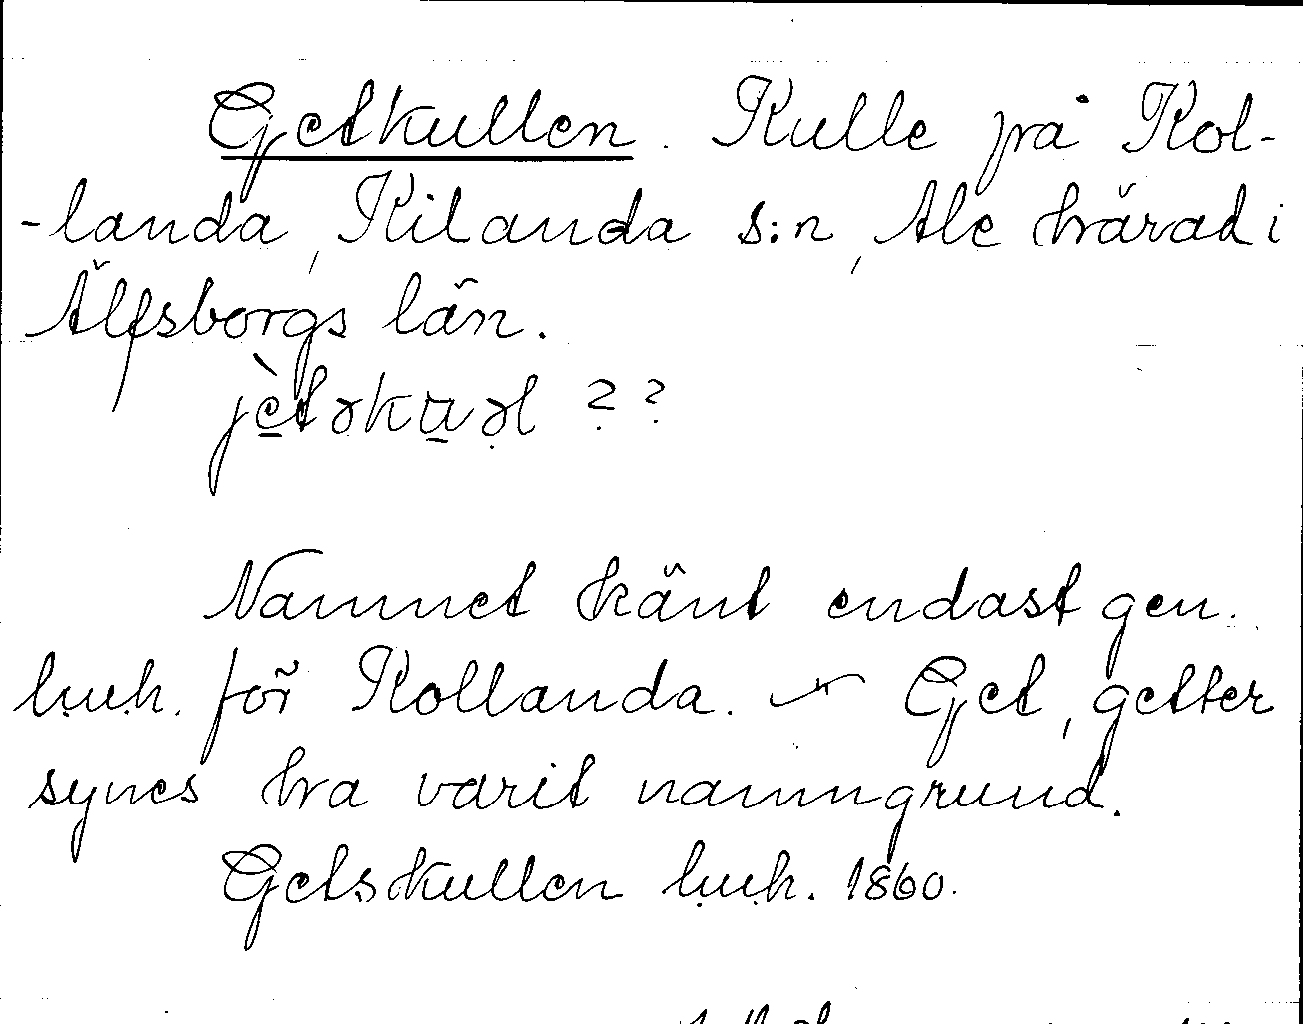 Getkullen. Kulle på Kol-
-landa, Kilanda s:n, Ale härad i
Älfsborgs län.
jètəkuəl ??
Namnet känt endast gen.
lu.h. för Kollanda. — Get, getter
synes ha varit namngrund.
Getskullen lu.h. 1860.